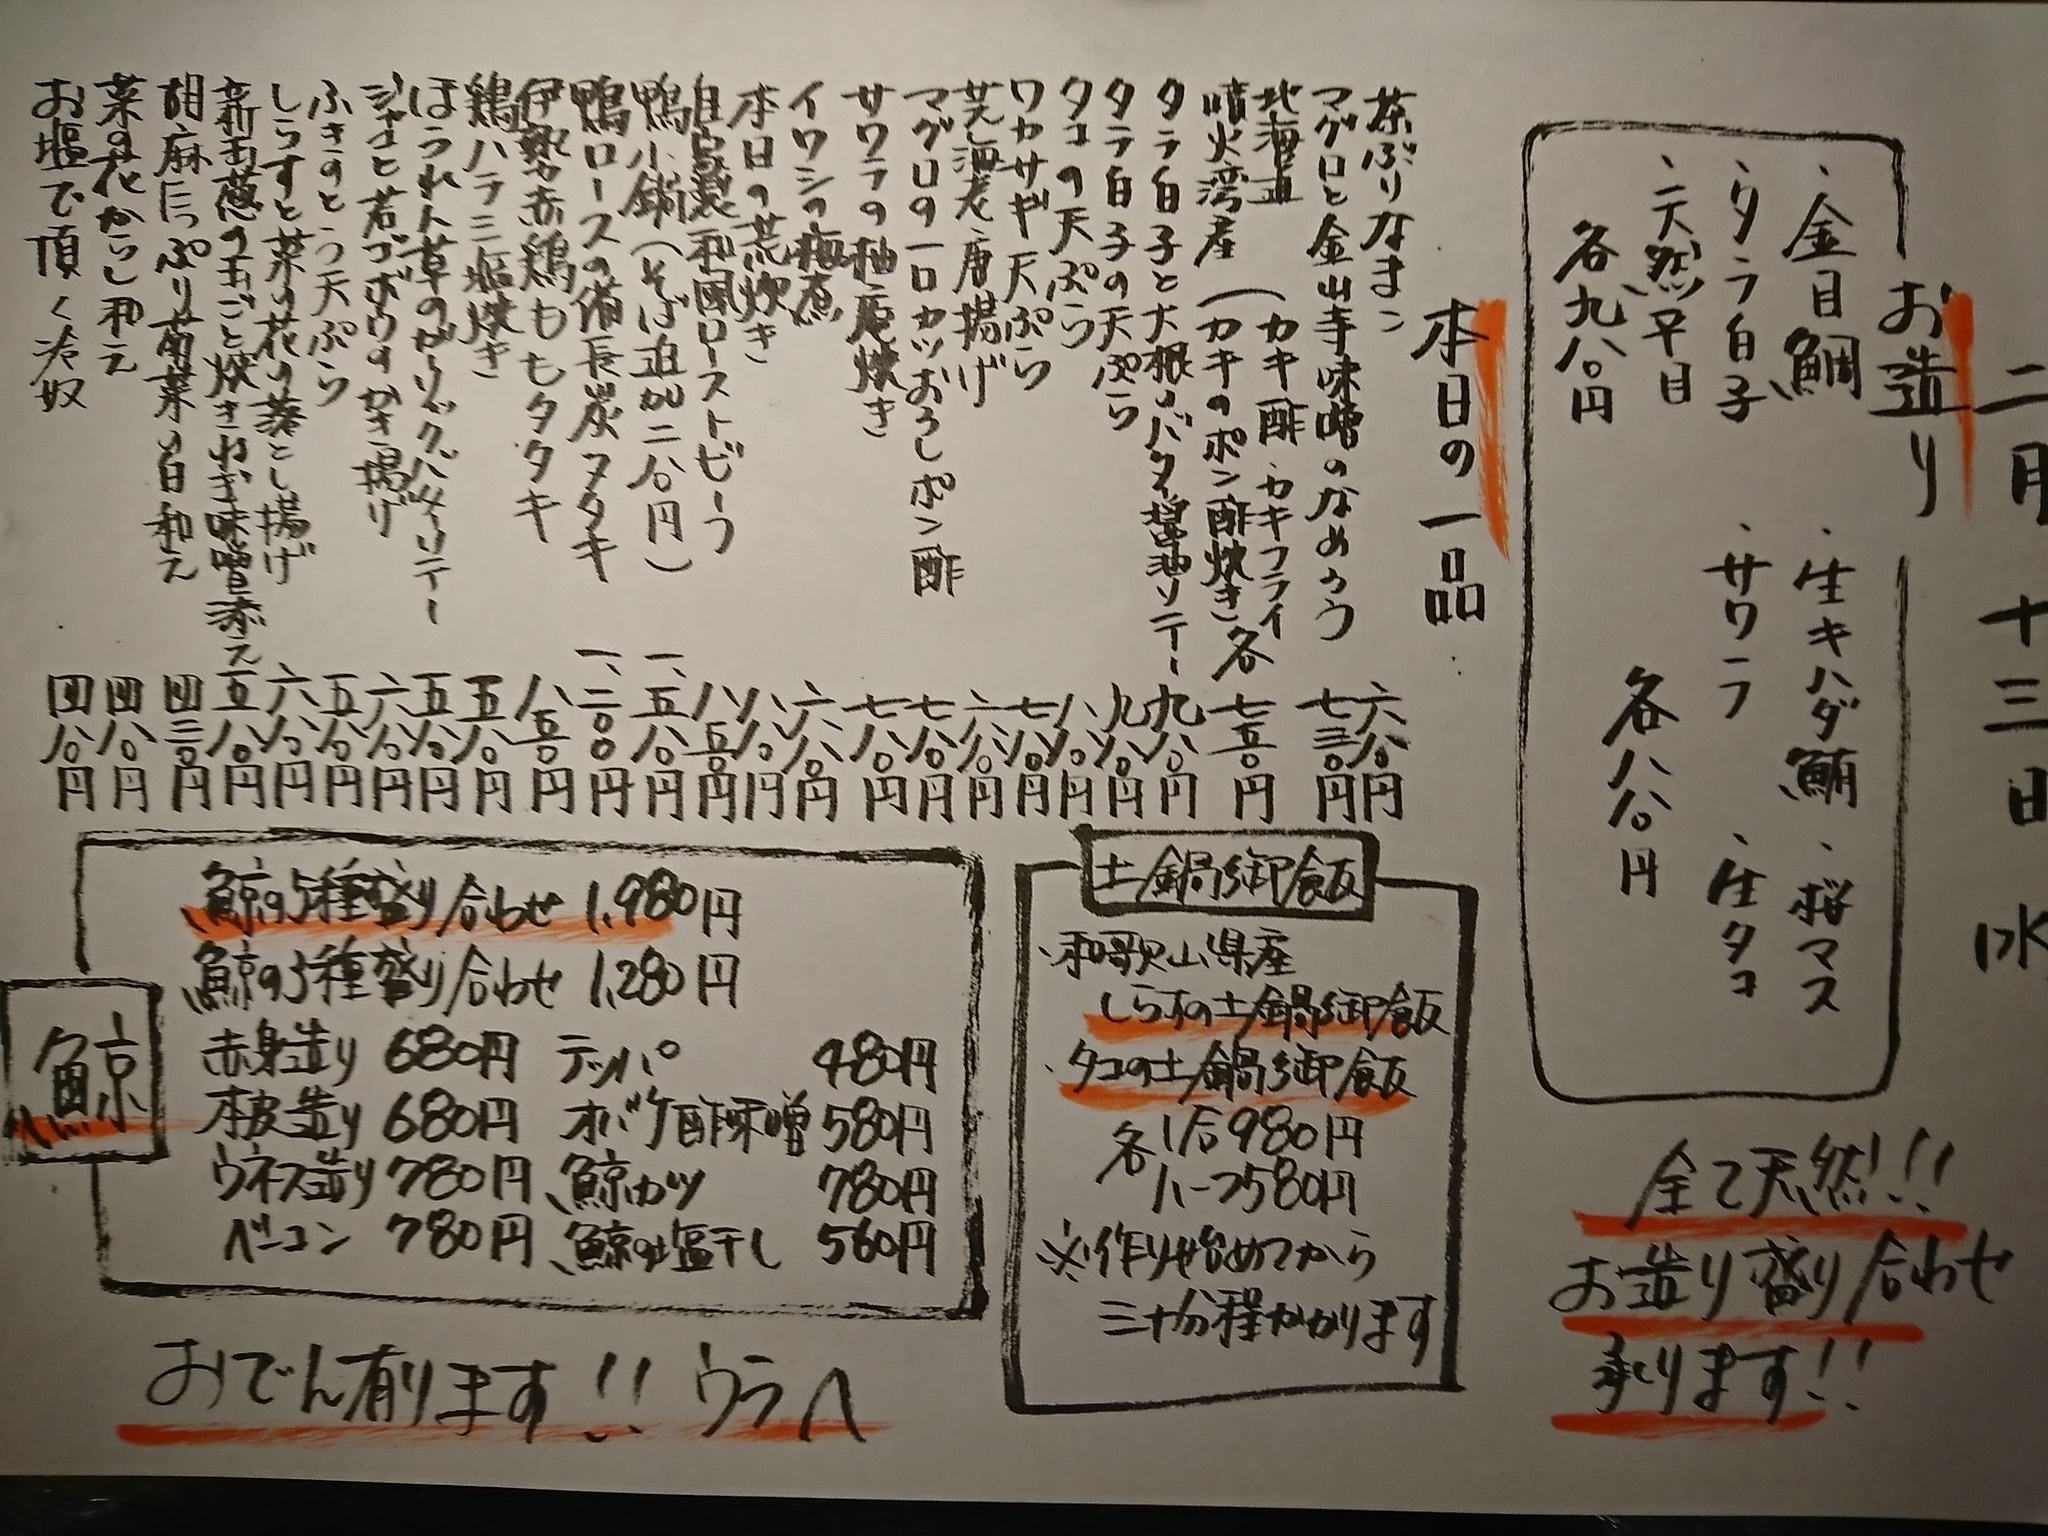 二月十三日 水
お造り
・金目鯛
・タラ白子
・天然平目
各九八〇円
・生キハダ鮪
・サワラ
・桜マス
・生タコ
各八八〇円
全て天然!!
お造り盛り合わせ
承ります!!
本日の一品
茶ぶりなまこ 六八〇円
マグロと金山寺味噌のなめろう 七三〇円
北海道 噴火湾産(カキ酢・カキフライ
(カキのポン酢焼き 各 七五〇円
タラ白子と大根のバター醤油ソテー 九八〇円
タラ白子の天ぷら 九八〇円
タコの天ぷら 八八〇円
ワカサギ天ぷら 七八〇円
芝海老唐揚げ 六八〇円
マグロの一口カツおろしポン酢 七八〇円
サワラの柚庵焼き 七八〇円
イワシの梅煮 六八〇円
本日の荒炊き 八八〇円
自家製和風ローストビーフ 八五〇円
鴨小鍋(そば追加二八〇円) 一、五八〇円
鴨ロースの備長炭タタキ 一、二〇〇円
伊勢赤鶏ももタタキ 八五〇円
鶏ハラミ塩焼き 五八〇円
ほうれん草のガーリックバターソテー 五八〇円
ジャコと若ゴボウのかき揚げ 六八〇円
ふきのとう天ぷら 五八〇円
しらすと菜の花の落とし揚げ 六八〇円
新玉葱の丸ごと焼きねぎ味噌添え 五八〇円
胡麻たっぷり菊菜白和え 四三〇円
菜の花からし和え 四八〇円
お塩で頂く冷奴 四八〇円
土鍋御飯
・和歌山県産
しらすの土鍋御飯
・タコの土鍋御飯
各1合980円
ハーフ580円
※作り始めてから
三十分程かかります
鯨
鯨の5種盛り合わせ 1,980円
鯨の3種盛り合わせ 1,280円
赤身造り 680円 テッパ 480円
本皮造り 680円 オバケ酢味噌 580円
ウネス造り 780円 鯨カツ 780円
ベーコン 780円 鯨の塩干し 560円
おでん有ります!! ウラへ